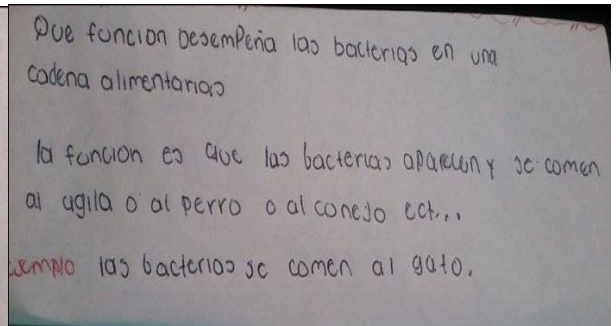 Que funcion Desempeña las bacterias en una
cadena alimentarias
la funcion es que las bacterias aparecen y se comen
al agila o al perro o al conejo ect...
ejemplo las bacterias se comen al gato.